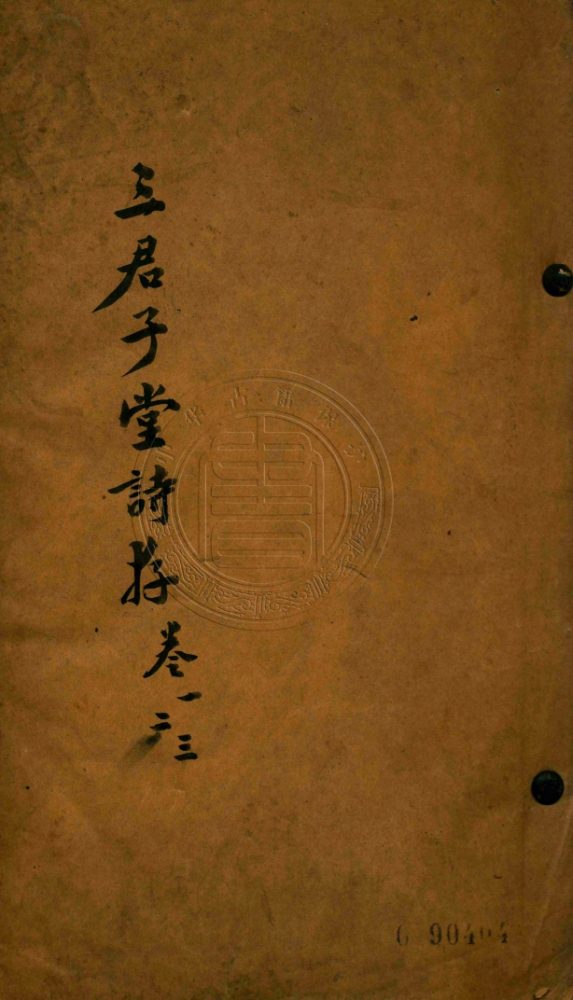 三君子堂詩存
卷一
二三
690404